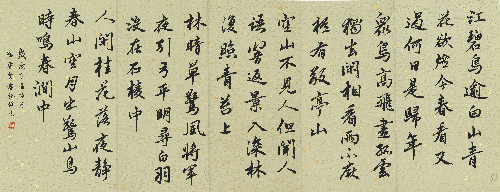 江碧鳥逾白山青
花欲然今春看又
過何日是歸年
衆鳥高飛盡孤雲
獨去閑相看兩不厭
祇有敬亭山
空山不見人但聞人
語響返景入深林
復照青苔上
林暗草驚風將軍
夜引弓平明尋白羽
没在石棱中
人閑桂花落夜静
春山空月出驚山鳥
時鳴春澗中